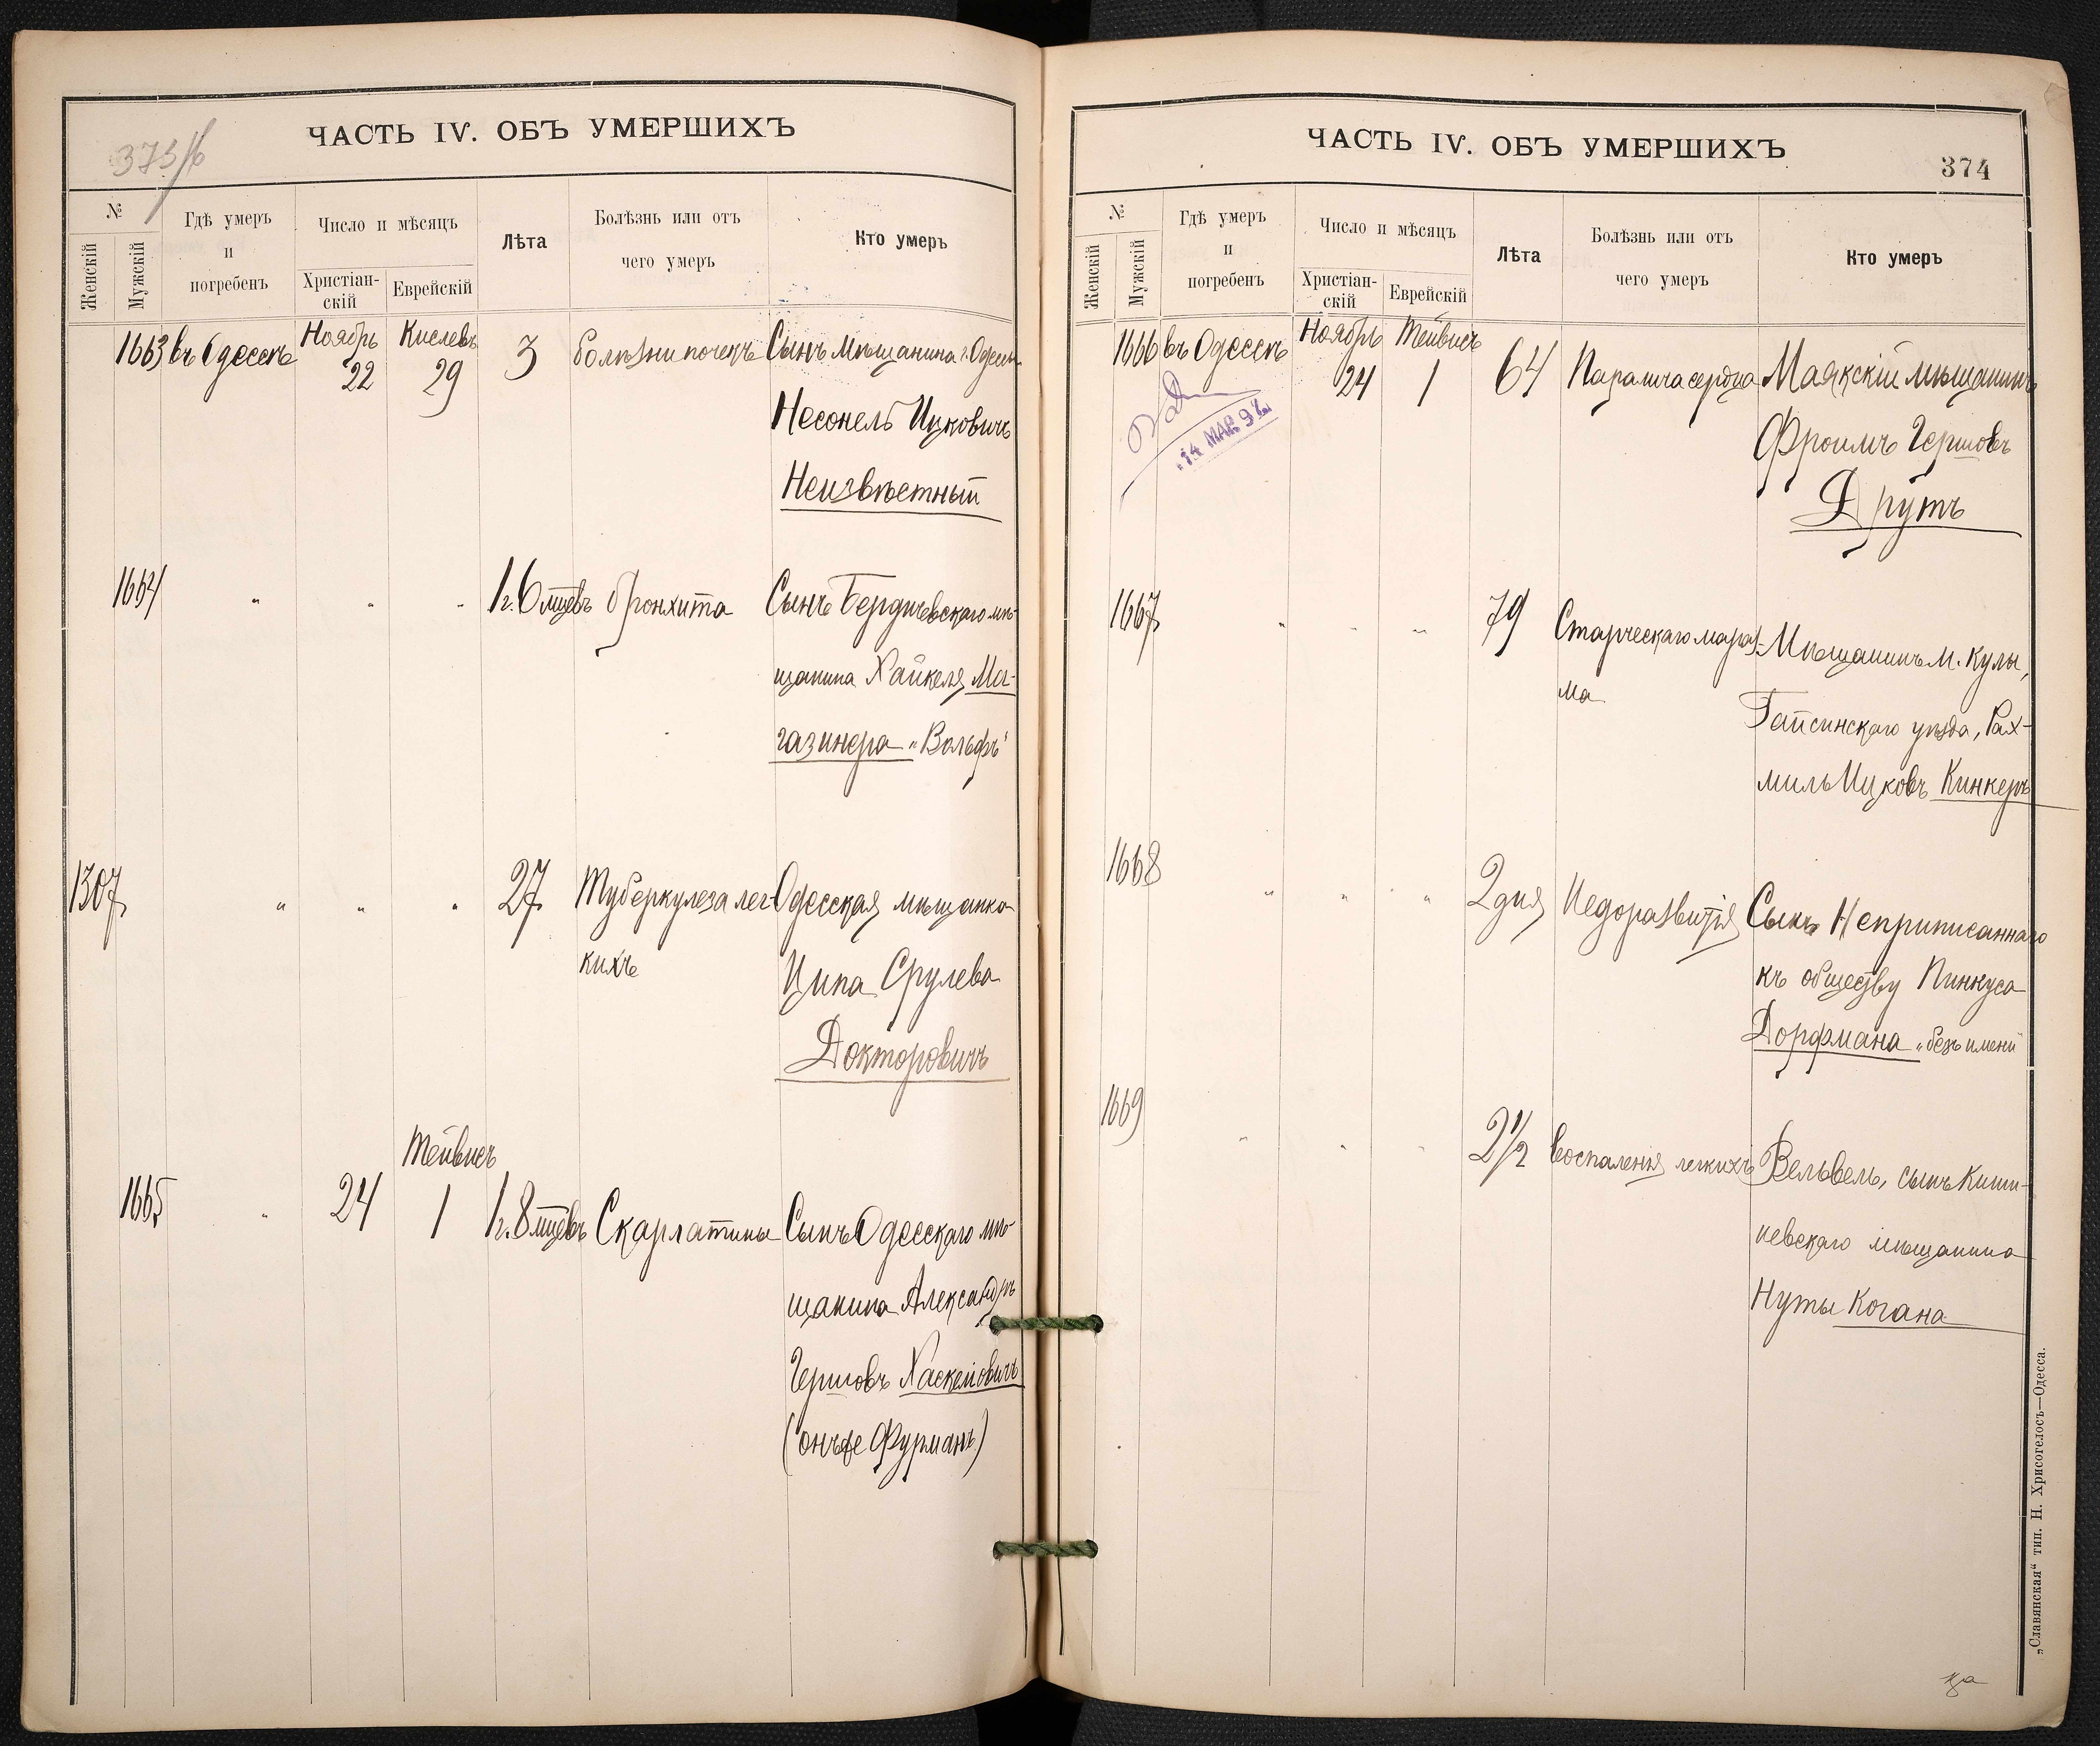 ЧАСТЬ IV. ОБЪ УМЕРШИХЪ
№
Женскій
Мужскій
Гдѣ умеръ
и
погребенъ
Число и мѣсяцъ
Христіан-
скій
Еврейскій
Лѣта
Болѣзнь или отъ
чего умеръ
Кто умеръ
1663 въ Одессѣ Ноябрь 22 Кислевъ 29 3 болѣзни почекъ Сынъ мѣщанина г. Одессы
Несонель Ицковичъ
Неизвѣстный
1664 " " " 1 г. 6 мцевъ бронхита Сынъ Бердичевскаго мѣ-
щанина Хайкеля Ма-
газинера „Вольфъ“
1307 " " " 27 Туберкулеза лег- Одесская мѣщанка
кихъ Ципа Срулева
Докторовичъ
Тейвисъ
1665 " 24 1 1 г. 8 мцевъ Скарлатины Сынъ Одесскаго мѣ-
щанина Александръ
Гершовъ Хаскелович
(онъ же Фурманъ)
ЧАСТЬ IV. ОБЪ УМЕРШИХЪ
374
№
Женскій
Мужскій
Гдѣ умеръ
и
погребенъ
Число и мѣсяцъ
Христіан-
скій
Еврейскій
Лѣта
Болѣзнь или отъ
чего умеръ
Кто умеръ
1666 въ Одессѣ Ноябрь 24 Тейвисъ 1 64 Паралича сердца Маякскій мѣщанинъ
14 МАР. 9
Фроимъ Гершовъ
Друтъ
1667 " " " 79 Старческаго мараз- Мѣщанинъ м. Куны,
ма Гайсинскаго уѣзда, Рах-
миль Ицковъ Кинкеръ
1668 " " " 2 дня Недоразвитія Сынъ Неприписаннаго
къ обществу Пинкуса
Дорфмана „безъ имени“
1669 " " " 2 1/2 воспаленія легкихъ Вельвель, сынъ Киши-
невскаго мѣщанина
Нуты Когана
„Славянская“ тип. Н. Хрисогелосъ—Одесса.